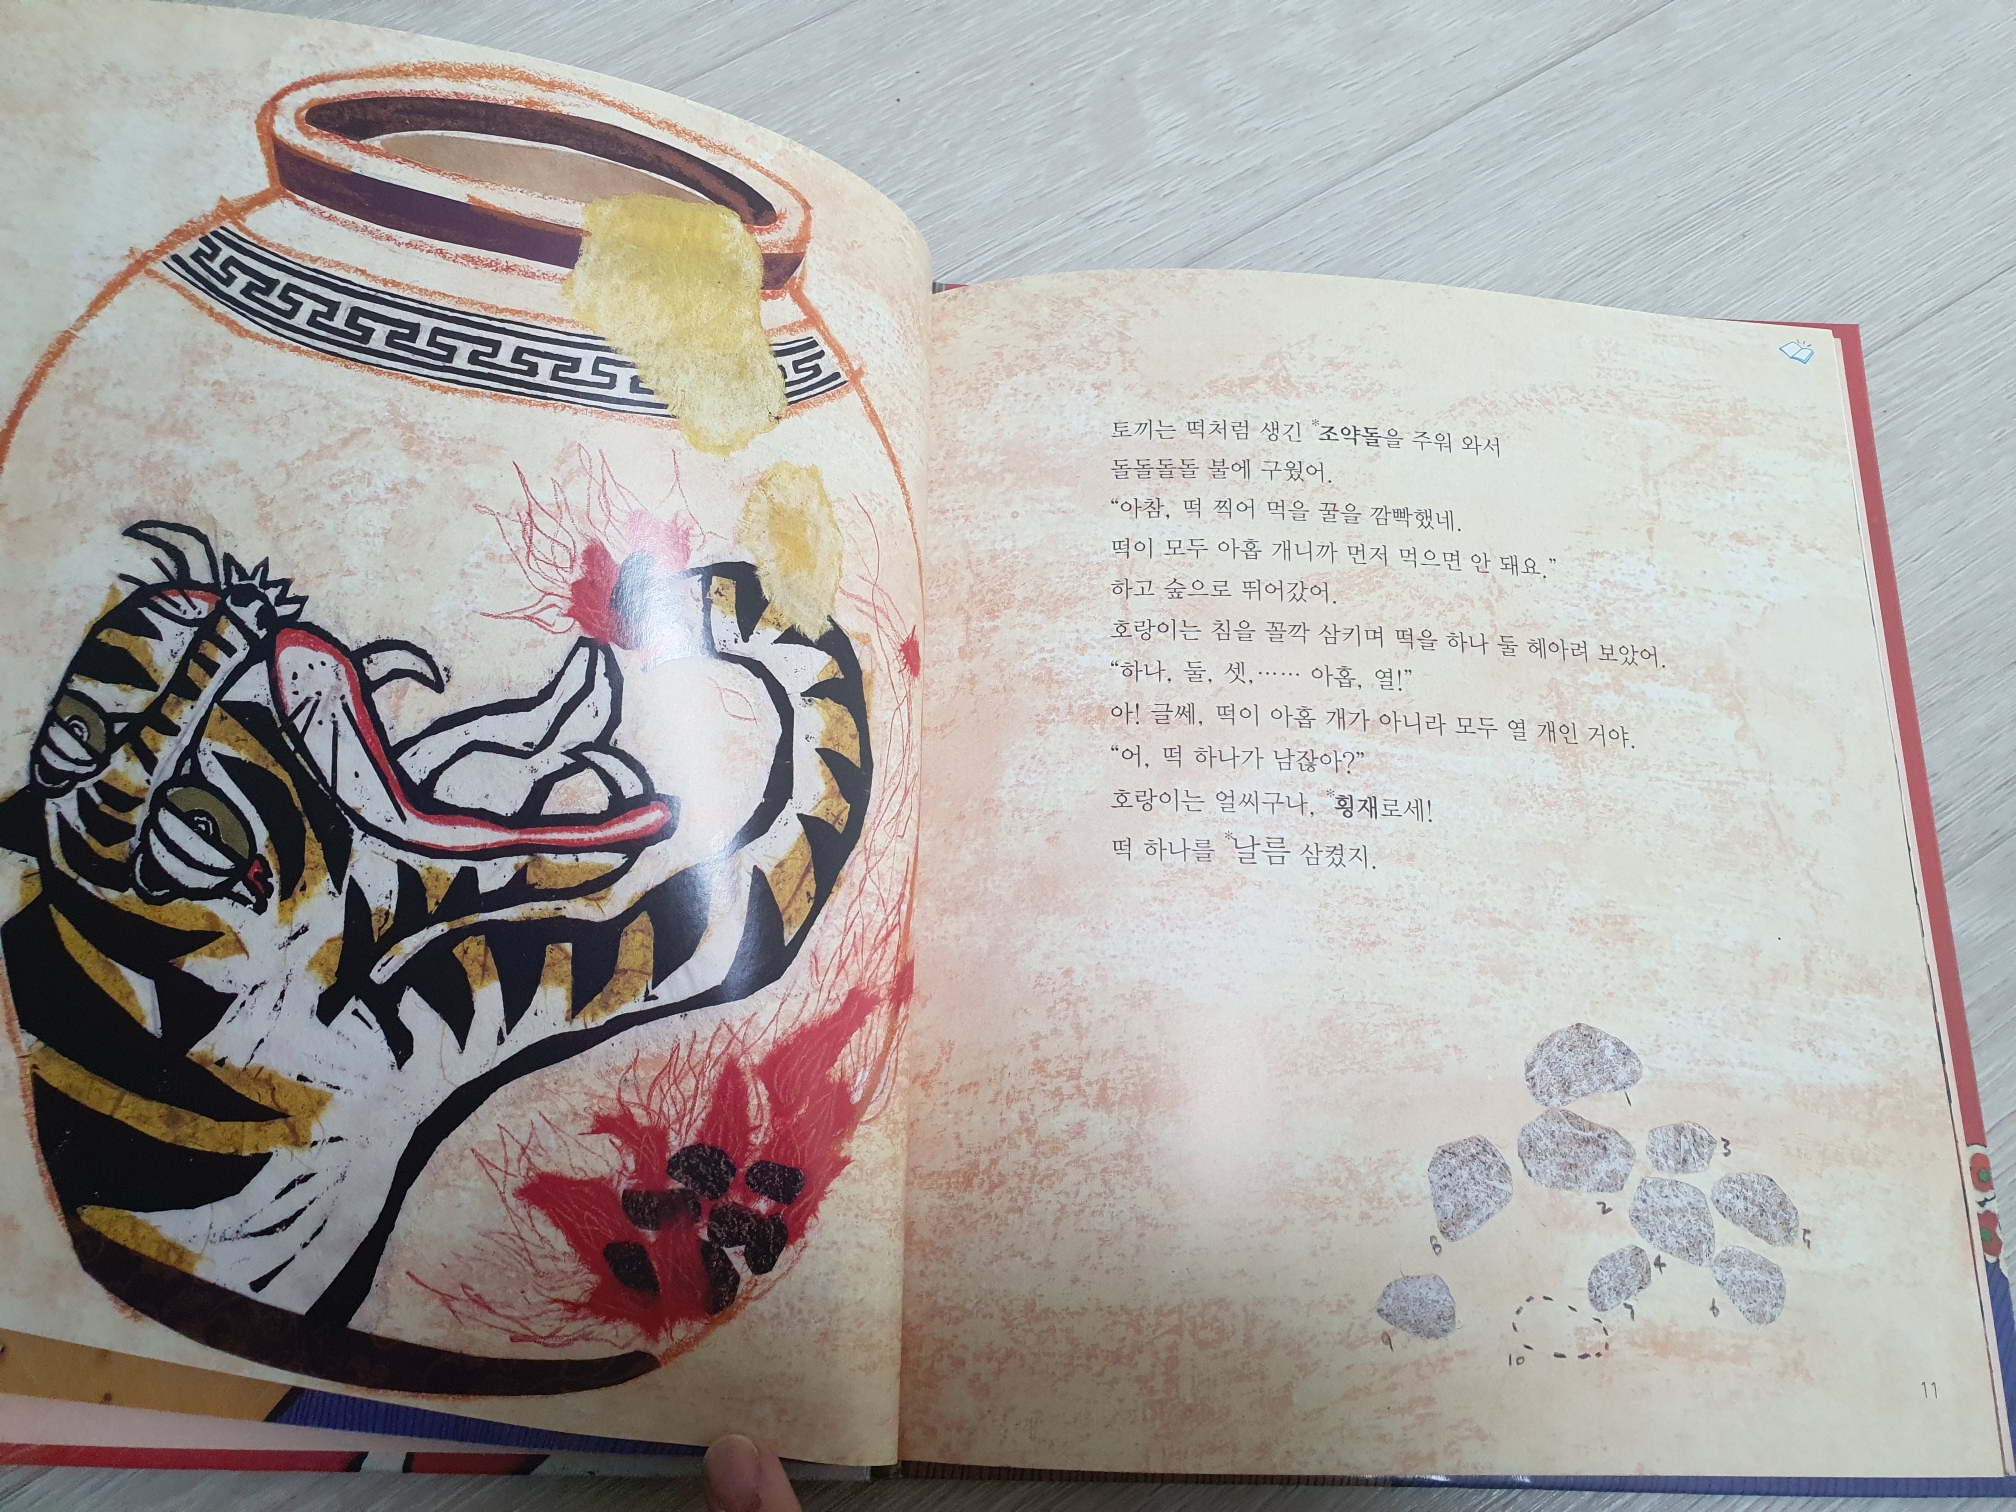 토끼는 떡처럼 생긴 *조약돌을 주워 와서
돌돌돌돌 불에 구웠어.
“아참, 떡 찍어 먹을 꿀을 깜빡했네.
떡이 모두 아홉 개니까 먼저 먹으면 안 돼요.”
하고 숲으로 뛰어갔어.
호랑이는 침을 꼴깍 삼키며 떡을 하나 둘 헤아려 보았어.
“하나, 둘, 셋, …… 아홉, 열!”
아! 글쎄, 떡이 아홉 개가 아니라 모두 열 개인 거야.
“어, 떡 하나가 남잖아?”
호랑이는 얼씨구나, *횡재로세!
떡 하나를 *날름 삼켰지.
1
3
2
8
5
4
7
6
9
10
11